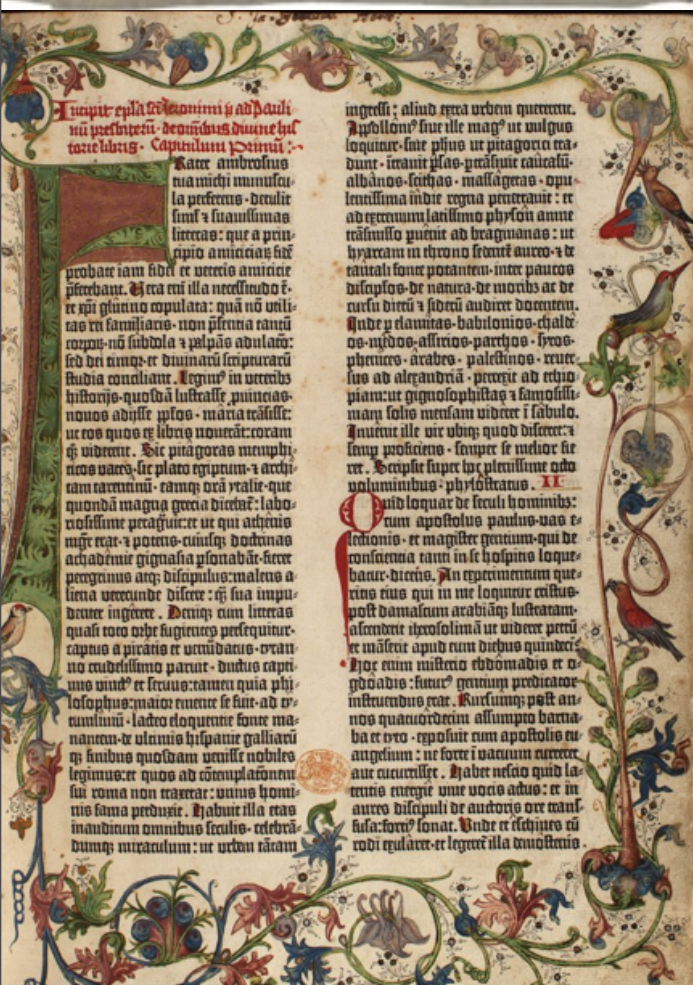 Incipit epl̃a sc̃i Ieronimi ꝑ̃ ad Pauli
nū presbiterū · de om̄ibus diuine his
torie libris · Capitulum Primū :·
Frater ambrosius
tua michi munuscu-
la perferens · detulit
simƚ ⁊ suauissimas
litteras: que a prin-
cipio amiciciaꝝ fidē
probate iam fidei et veteris amicicie
p̄ferebant. Vera eni illa necessitudo ē ·
et xp̄i glutino copulata: quam nō vtili-
tas rei familiaris · non p̄sentia tantū
corpoꝝ · nō subdola ⁊ palpās adulaco͛:
sed dei timoꝛ · et diuinarū scripturarū
studia conciliant. Legimꝰ in veteribꝫ
historijs · quosdā lustrasse ꝓuincias ·
nouos adijsse pp̄los · maria trāsisse:
ut eos quos ex libris nouerāt: coram
qꝫ viderent. Sic pitagoras memphi-
ticos vates · sic plato egiptum · ⁊ archi-
tam tarentinū · eamqꝫ orā ytalie · que
quondā magna grecia dicebat͛: labo-
riosissime peragͥuit: et ut qui athenis
mg͛r erat · ⁊ potens · cuiusqꝫ doctrinas
achademie gignasia ꝑsonabāt · fieret
peregrinus atqꝫ discipulus: malens a-
liena verecunde discere: qꝫ sua impu-
denter ingerere. Deniqꝫ cum litteras
quasi toto orbe fugientes persequitur ·
captus a piratis et venūdatus · tyran-
no crudelissimo paruit · ductus capti-
uus vinctꝰ et seruus: tamen quia phi-
losophus: maior emente se fuit · ad ty-
tumliuiū · lacteo eloquentie fonte ma-
nantem · de vltimis hispanie galliarū
qꝫ finibus quosdam venisse nobiles
legimus: et quos ad ꝯtemplatōnem
sui roma non traxerat: vnius homi-
nis fama perduxit. Habuit illa etas
inauditum omnibus seculis · celebrā-
dumqꝫ miraculum: ut vrbem tātam
ingressi: aliud extra vrbem quererent.
Apollonꝰ siue ille magꝰ ut vulgus
loquitur · siue ph̄us ut pitagorici tra-
dunt · ītrauit ꝑsas · ꝑtrāsiuit caucasū ·
albānos · scithas · massagetas · opu-
lentissima īdie regna penetrauit: et
ad extremum latissimo physon amne
trāsmisso puenit ad bragmanas: ut
hyarcam in throno sedentē aureo · ⁊ de
tantali fonte potantem · inter paucos
discipl̄os · de natura · de moribꝫ ac de
cursu dierū ⁊ siderū audiret docentem.
Inde ꝑ elamitas · babilonios · chalde-
os · medos · assirios · parthos · syros ·
phenices · ārabes · palestinos · reuer-
sus ad alexandriā · perrexit ad ethio-
piam: ut gignosophistas ⁊ famosissi-
mam solis mensam videret ī sabulo.
Inuenit ille vir vbiqꝫ quod disceret: ⁊
semꝑ proficiens · semper se melior fie-
ret. Scripsit super hoc plenissime octo
voluminibus · phylostratus. II
Quid loquar de seculi hominibꝫ:
cum apostolus paulus · vas e-
lectionis · et magister gentium · qui de
conscientia tanti in se hospitis loque-
batur · dicens. An experimentum que-
ritis eius qui in me loquitur cristus ·
post damascum arabiāqꝫ lustratam ·
ascenderit iherosolimā ut videret petrū
et māserit apud eum diebus quindeci͛
Hoc enim misterio ebdomadis et o-
gdoadis: futurꝰ gentium predicator
instruendus erat. Rursumqꝫ post an-
nos quatuordecim assumpto barna-
ba et tyto · exposuit cum apostolis eu-
angelium: ne forte ī vacuum curreret
aut cucurrisset. Habet nescio quid la-
tentis energie viue vocis actus: et in
aures discipuli de auctoris ore trans-
fusa: fortiꝰ sonat. Vnde et eschines cū
rodi exularet · et legeret͛ illa demostenis